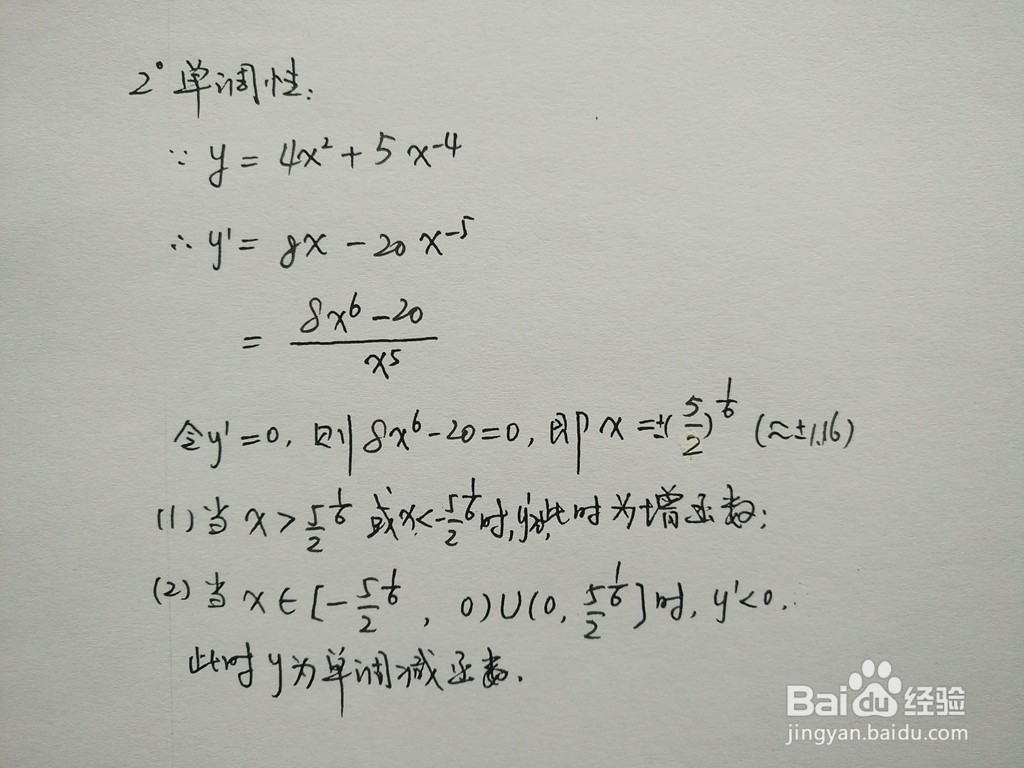 2° 单调性:
∵ y = 4x² + 5x⁻⁴
∴ y' = 8x - 20x⁻⁵
= (8x⁶ - 20)/x⁵
令y'=0, 则8x⁶-20=0, 即x=±(5/2)^(1/6) (≈±1.16)
(1) 当x>5/2^(1/6)或x<-5/2^(1/6)时, y'>0, 此时为增函数;
(2) 当x∈[-5/2^(1/6), 0)∪(0, 5/2^(1/6)]时, y'<0.
此时y为单调减函数.
Baidu经验
jingyan.baidu.com